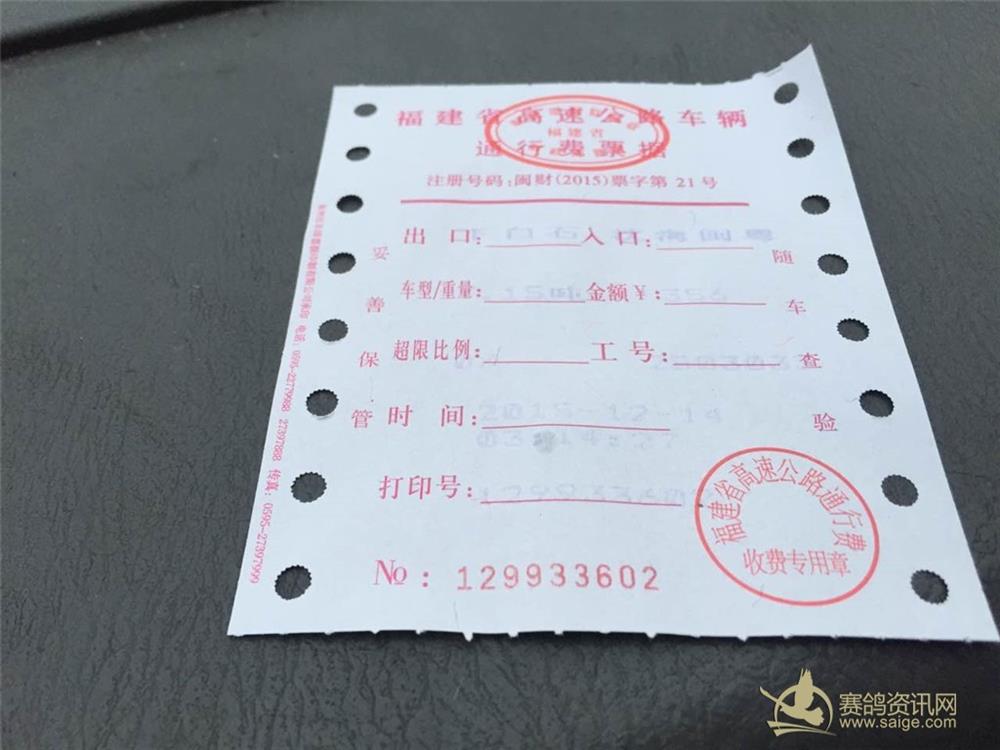 福建省高速公路车辆
通行费票据
福建省
注册号码:闽财(2015)票字第 21 号
出 口: 下白石 入 口:
车型/重量: 15吨 金额¥: 356
超限比例: 工 号:
时 间: 2015-12-14
03:14:27
打印号:
№: 129933602
妥善保管
随车查验
福建省高速公路通行费
收费专用章
电话: 0595-22779988 27397888 传真: 0595-27397999
赛鸽资讯网
www.saige.com